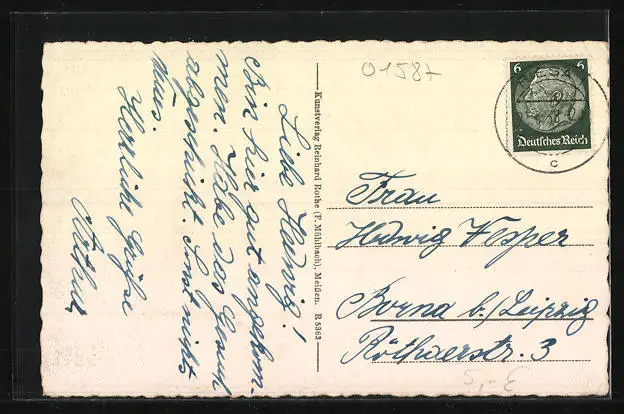 Liebe Hedwig!
Bin hier gut angekom-
men. Habe das Gesuch
abgeschickt. Sonst nichts
neues.
Herzliche Grüße
Kunstverlag Reinhard Rothe (P. Mühlbach), Meißen. R 5363
01587
6 6
Deutsches Reich
RIESA
c
Frau
Hedwig Vesper
Borna b./Leipzig
Röthaerstr. 3
5,- €